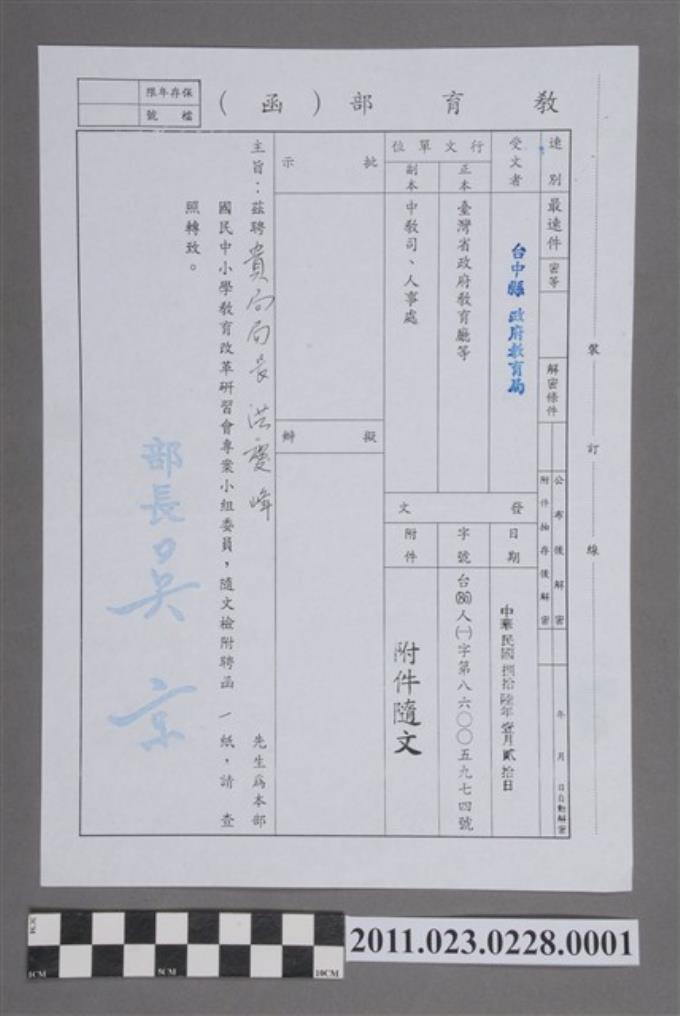 教育部（函）
保存年限
檔號
速別
最速件
密等
解密條件
公布後解密
附件抽存後解密
年 月 日自動解密
受文者
台中縣政府教育局
行文單位
正本
臺灣省政府教育廳等
副本
中教司、人事處
發文
日期
中華民國捌拾陸年壹月貳拾日
字號
台(86)人(一)字第八六〇〇五九七四號
附件
附件隨文
批示
擬辦
主旨：茲聘貴局局長洪慶峰 先生為本部
國民中小學教育改革研習會專業小組委員，隨文檢附聘函一紙，請 查
照轉致。
部長吳京
裝
訂
線
1CM
5CM
10CM
2011.023.0228.0001